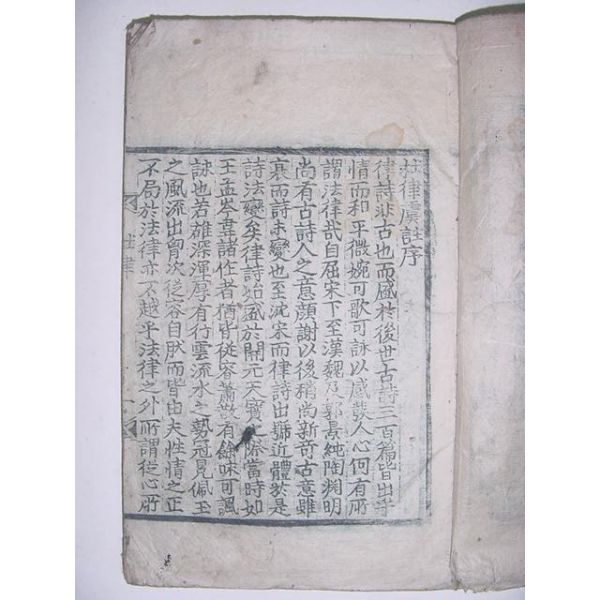 杜律虞註序
律詩非古也而盛於後世古詩三百篇皆出乎
情而和平微婉可歌可詠以感發人心何有所
謂法律哉自屈宋下至漢魏及郭景純陶淵明
尚有古詩人之意顔謝以後稍尚新奇古意雖
衰而詩未變也至沈宋而律詩出號近體於是
詩法變矣律詩始盛於開元天寶之際當時如
王孟岑韋諸作者猶皆從容蕭散有餘味可諷
詠也若雄深渾厚有行雲流水之勢冠冕佩玉
之風流出胷次從容自然而皆由夫性情之正
不局於法律亦不越乎法律之外所謂從心所
杜律